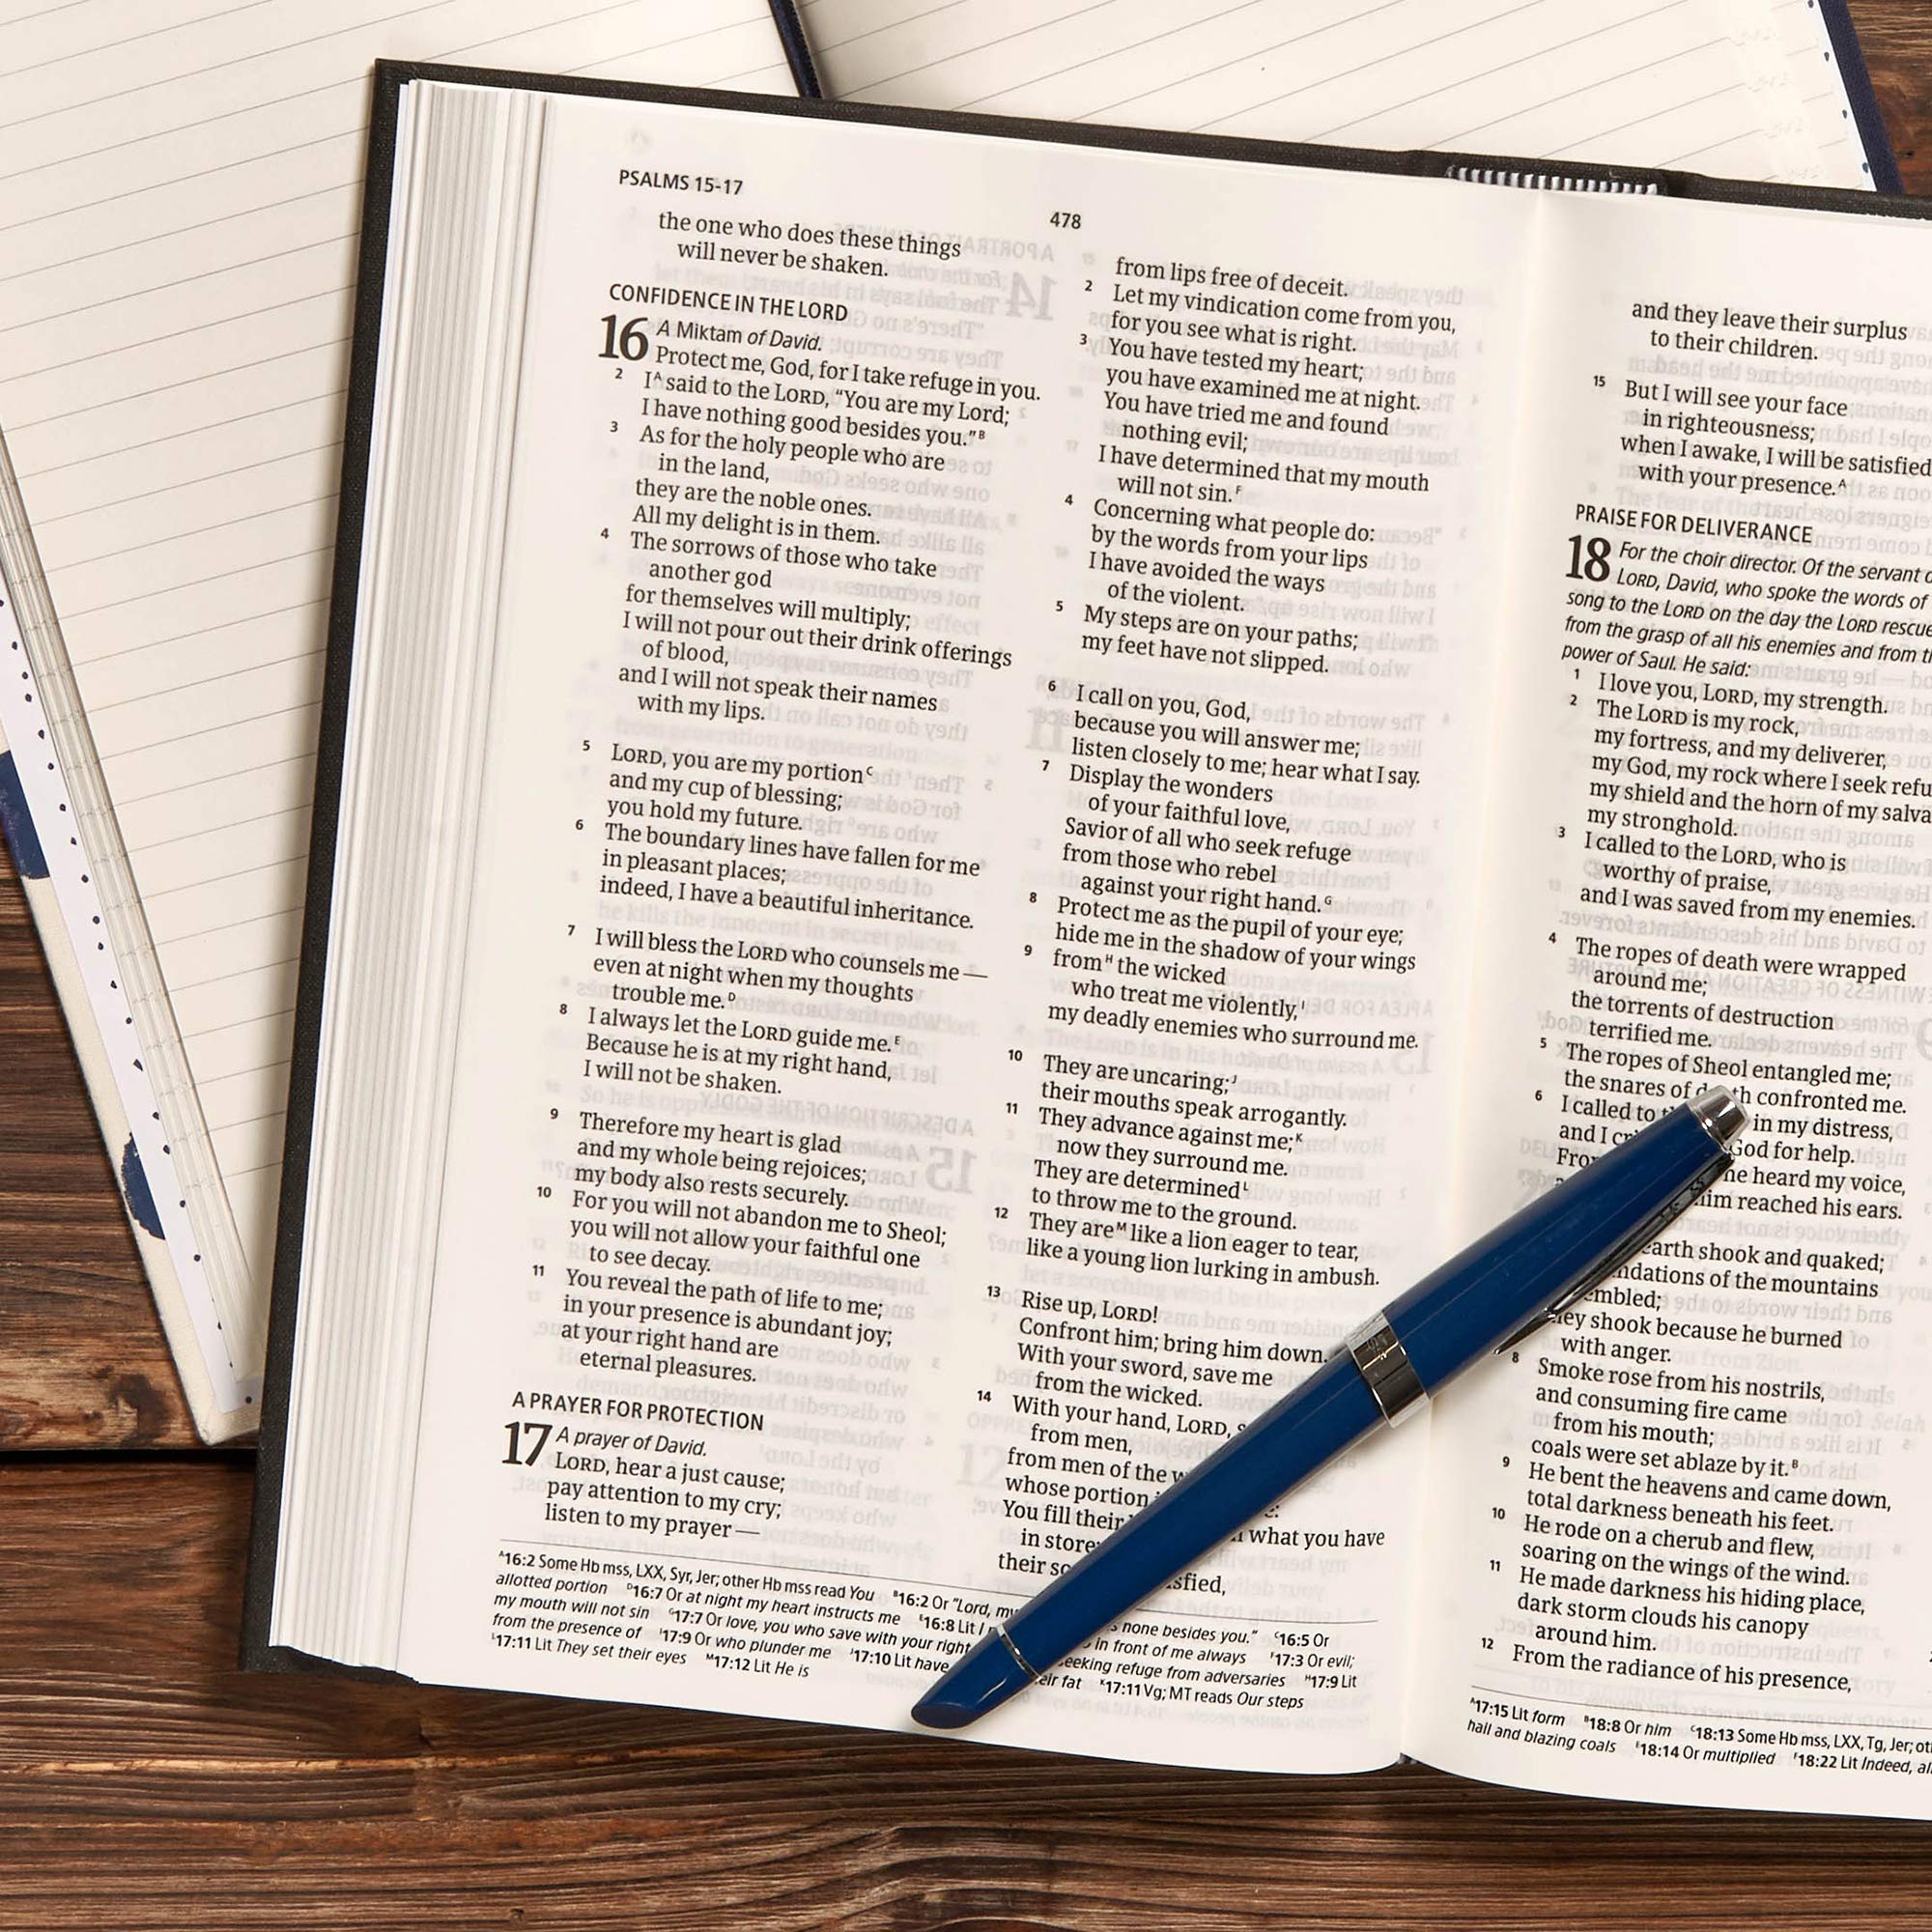 PSALMS 15-17
478
the one who does these things
will never be shaken.
CONFIDENCE IN THE LORD
16 A Miktam of David.
Protect me, God, for I take refuge in you.
2 I^A said to the LORD, “You are my Lord;
I have nothing good besides you.”^B
3 As for the holy people who are
in the land,
they are the noble ones.
All my delight is in them.
4 The sorrows of those who take
another god
for themselves will multiply;
I will not pour out their drink offerings
of blood,
and I will not speak their names
with my lips.
5 LORD, you are my portion^C
and my cup of blessing;
you hold my future.
6 The boundary lines have fallen for me
in pleasant places;
indeed, I have a beautiful inheritance.
7 I will bless the LORD who counsels me —
even at night when my thoughts
trouble me.^D
8 I always let the LORD guide me.^E
Because he is at my right hand,
I will not be shaken.
9 Therefore my heart is glad
and my whole being rejoices;
my body also rests securely.
10 For you will not abandon me to Sheol;
you will not allow your faithful one
to see decay.
11 You reveal the path of life to me;
in your presence is abundant joy;
at your right hand are
eternal pleasures.
A PRAYER FOR PROTECTION
17 A prayer of David.
LORD, hear a just cause;
pay attention to my cry;
listen to my prayer —
from lips free of deceit.
2 Let my vindication come from you,
for you see what is right.
3 You have tested my heart;
you have examined me at night.
You have tried me and found
nothing evil;
I have determined that my mouth
will not sin.^F
4 Concerning what people do:
by the words from your lips
I have avoided the ways
of the violent.
5 My steps are on your paths;
my feet have not slipped.
6 I call on you, God,
because you will answer me;
listen closely to me; hear what I say.
7 Display the wonders
of your faithful love,
Savior of all who seek refuge
from those who rebel
against your right hand.^G
8 Protect me as the pupil of your eye;
hide me in the shadow of your wings
9 from^H the wicked
who treat me violently,^I
my deadly enemies who surround me.
10 They are uncaring;^J
their mouths speak arrogantly.
11 They advance against me;^K
now they surround me.
They are determined^L
to throw me to the ground.
12 They are^M like a lion eager to tear,
like a young lion lurking in ambush.
13 Rise up, LORD!
Confront him; bring him down.
With your sword, save me
from the wicked.
14 With your hand, LORD,
from men,
from men of the
whose portion
You fill their what you have
in
their
^A16:2 Some Hb mss, LXX, Syr, Jer; other Hb mss read You ^B16:2 Or “Lord, none besides you.” ^C16:5 Or
allotted portion ^D16:7 Or at night my heart instructs me ^E16:8 Lit I in front of me always ^F17:3 Or evil;
my mouth will not sin ^G17:7 Or love, you who save with your right seeking refuge from adversaries ^H17:9 Lit
from the presence of ^I17:9 Or who plunder me ^J17:10 Lit have fat ^K17:11 Vg; MT reads Our steps
^L17:11 Lit They set their eyes ^M17:12 Lit He is
and they leave their surplus
to their children.
15 But I will see your face
in righteousness;
when I awake, I will be satisfied
with your presence.^A
PRAISE FOR DELIVERANCE
18 For the choir director. Of the servant
LORD, David, who spoke the words of
song to the LORD on the day the LORD
from the grasp of all his enemies and from
power of Saul. He said:
1 I love you, LORD, my strength.
2 The LORD is my rock,
my fortress, and my deliverer,
my God, my rock where I seek
my shield and the horn of my
my stronghold.
3 I called to the LORD, who is
worthy of praise,
and I was saved from my enemies.
4 The ropes of death were wrapped
around me;
the torrents of destruction
terrified me.
5 The ropes of Sheol entangled me;
the snares of death confronted me.
6 I called to in my distress,
and I God for help.
From he heard my voice,
him reached his ears.
earth shook and quaked;
of the mountains
they shook because he burned
with anger.
8 Smoke rose from his nostrils,
and consuming fire came
from his mouth;
coals were set ablaze by it.^B
9 He bent the heavens and came down,
total darkness beneath his feet.
10 He rode on a cherub and flew,
soaring on the wings of the wind.
11 He made darkness his hiding place,
dark storm clouds his canopy
around him.
12 From the radiance of his presence,
^A17:15 Lit form ^B18:8 Or him ^C18:13 Some Hb mss, LXX, Tg, Jer;
hail and blazing coals ^E18:14 Or multiplied ^F18:22 Lit Indeed,